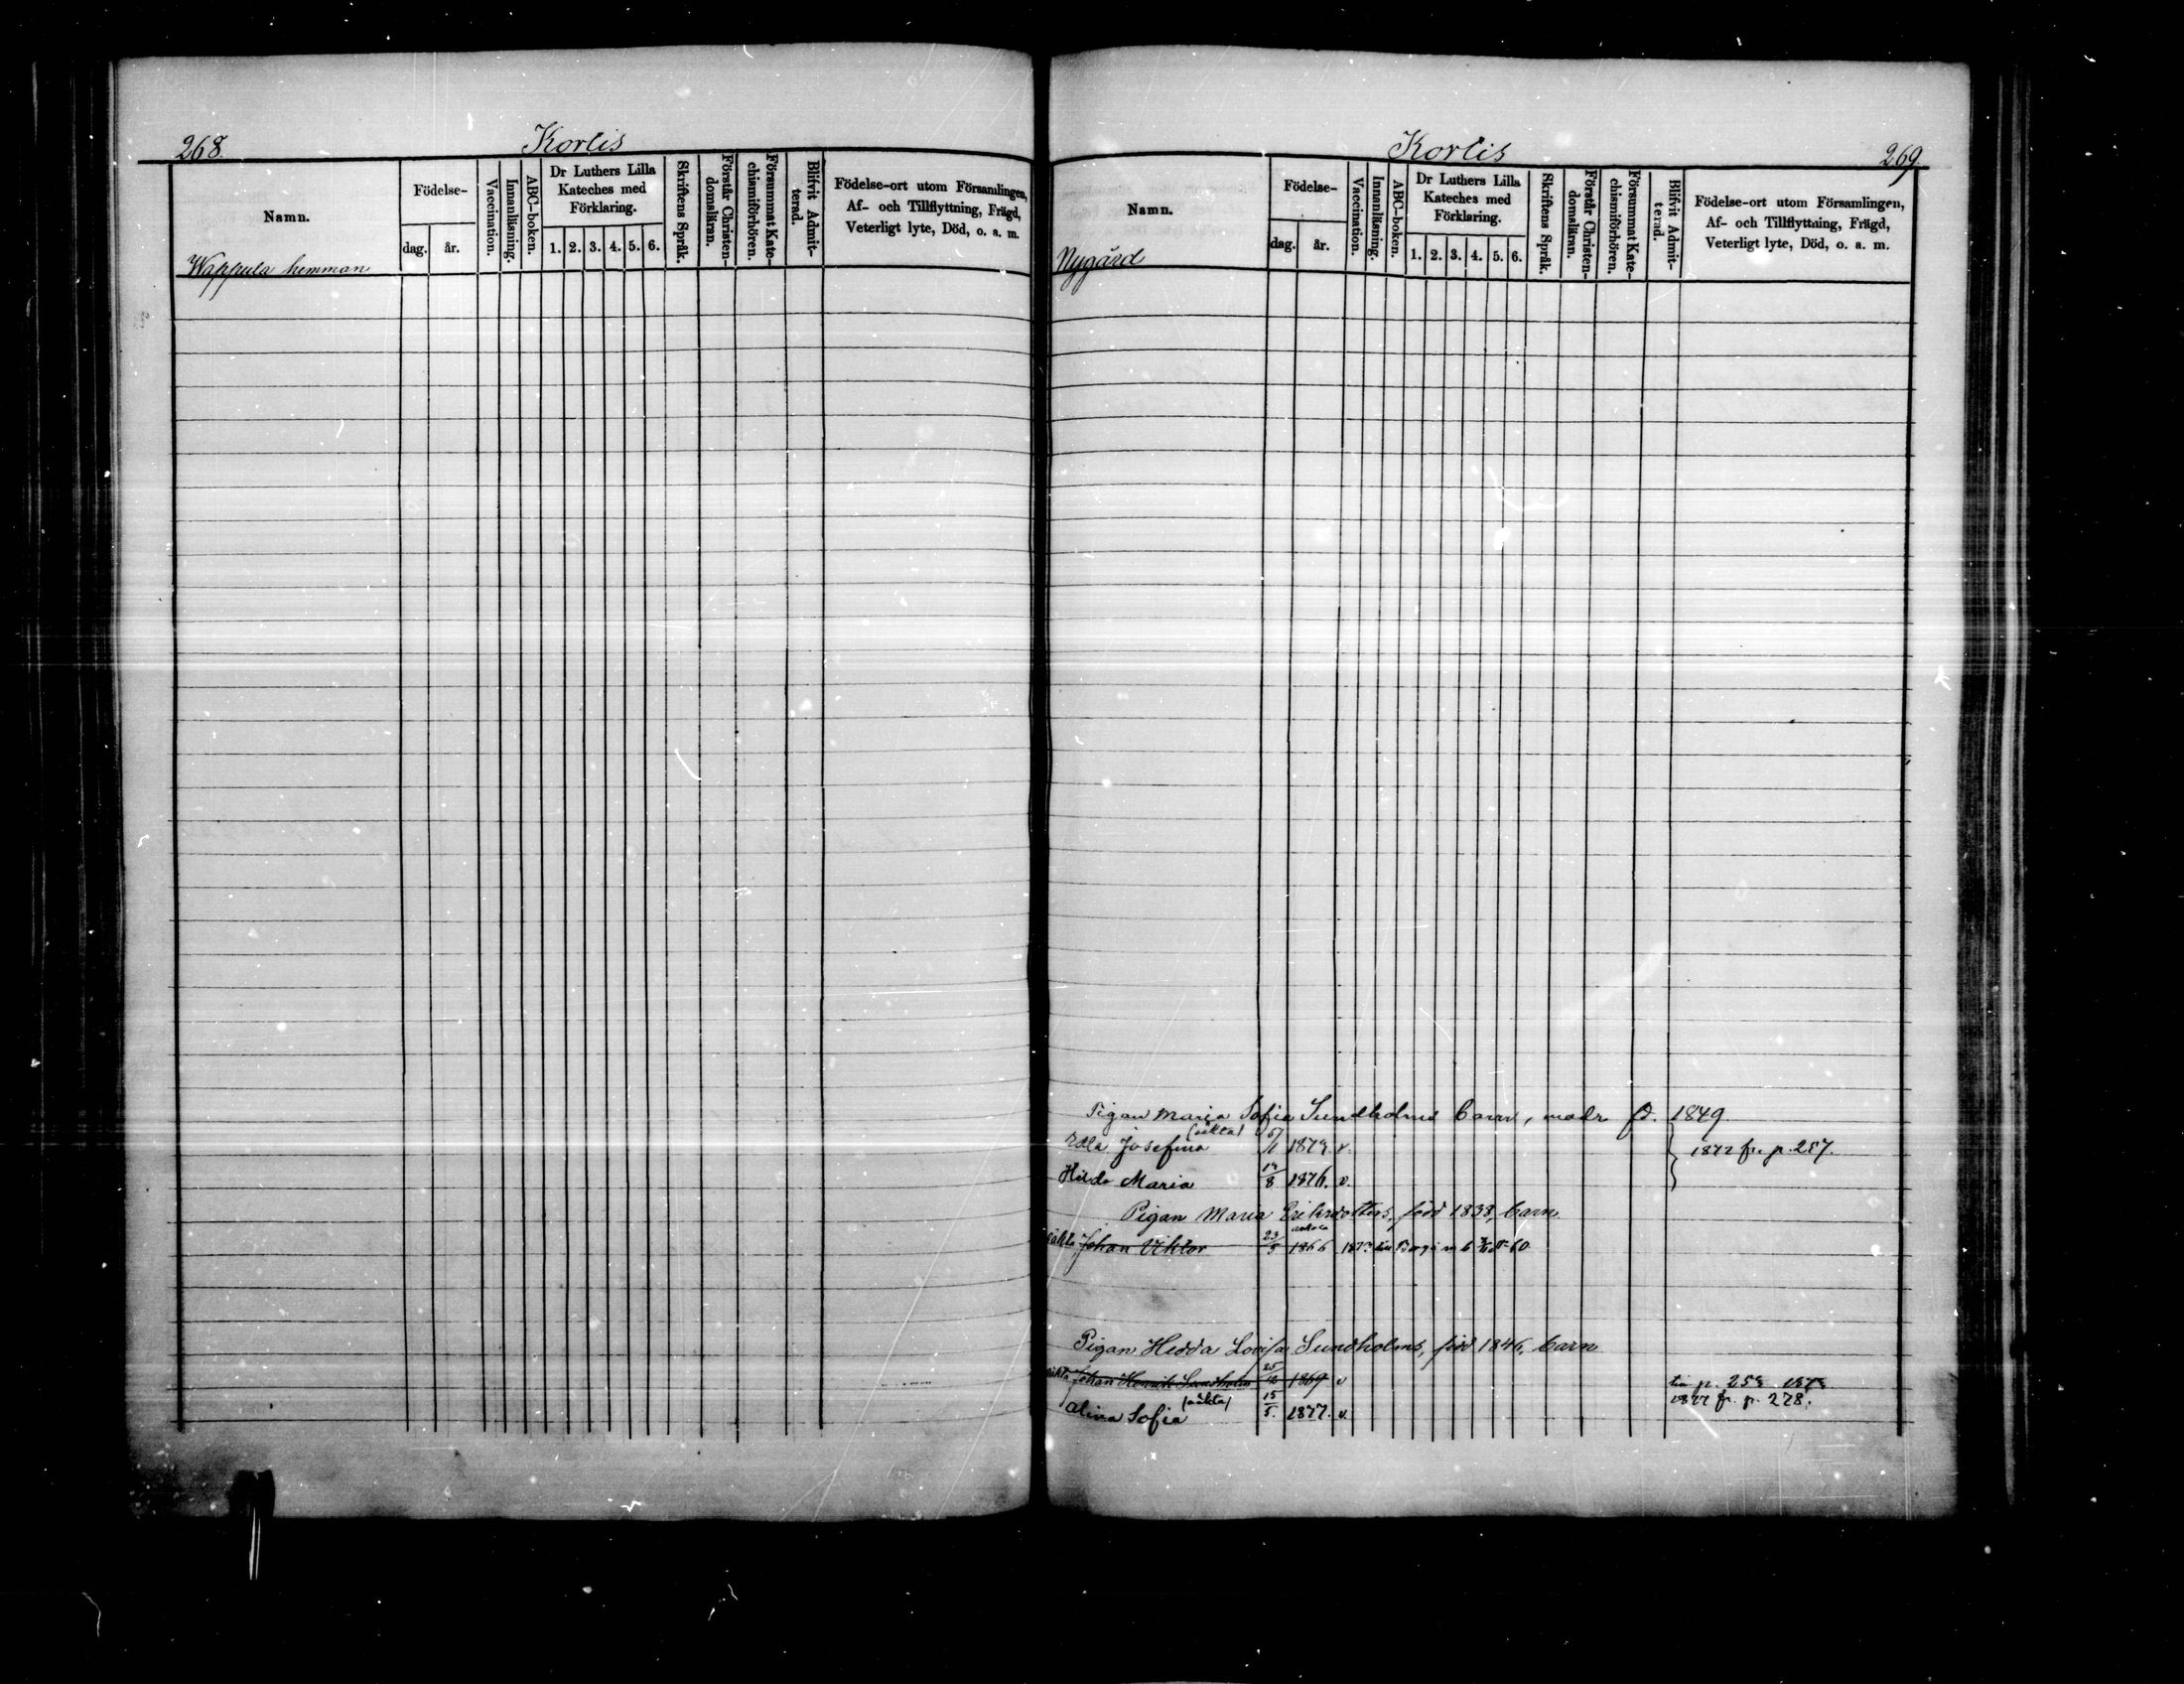 268.
Korlis
Namn.
Födelse-
dag.
år.
Vaccination.
Innanläsning.
ABC-boken.
Dr Luthers Lilla
Kateches med
Förklaring.
1. 2. 3. 4. 5. 6.
Skriftens Språk.
Förstår Christen-
domsläran.
Försummat Kate-
chismiförhören.
Blifvit Admit-
terad.
Födelse-ort utom Församlingen,
Af- och Tillflyttning, Frägd,
Veterligt lyte, Död, o. a. m.
Wappula hemman
Korlis
269.
Namn.
Födelse-
dag.
år.
Vaccination.
Innanläsning.
ABC-boken.
Dr Luthers Lilla
Kateches med
Förklaring.
1. 2. 3. 4. 5. 6.
Skriftens Språk.
Förstår Christen-
domsläran.
Försummat Kate-
chismiförhören.
Blifvit Admit-
terad.
Födelse-ort utom Församlingen,
Af- och Tillflyttning, Frägd,
Veterligt lyte, Död, o. a. m.
Nygård
Pigan Maria Sofia Sundholms barn, modr fd. 1849
(oäkta)
Josefina v. fr. p. 257.
Hilda Maria 8 1876. v.
Pigan Maria Eriksdotters, född 1838, barn
oäkta Johan Viktor 23/5 1866
Pigan Hedda Lovisa Sundholms, född 1846, barn
oäkta Johan Henrik Sundholm 25/12 1869 v p. 258
(oäkta) fr. p. 278.
Alina Sofia 15/5. 1877. v.